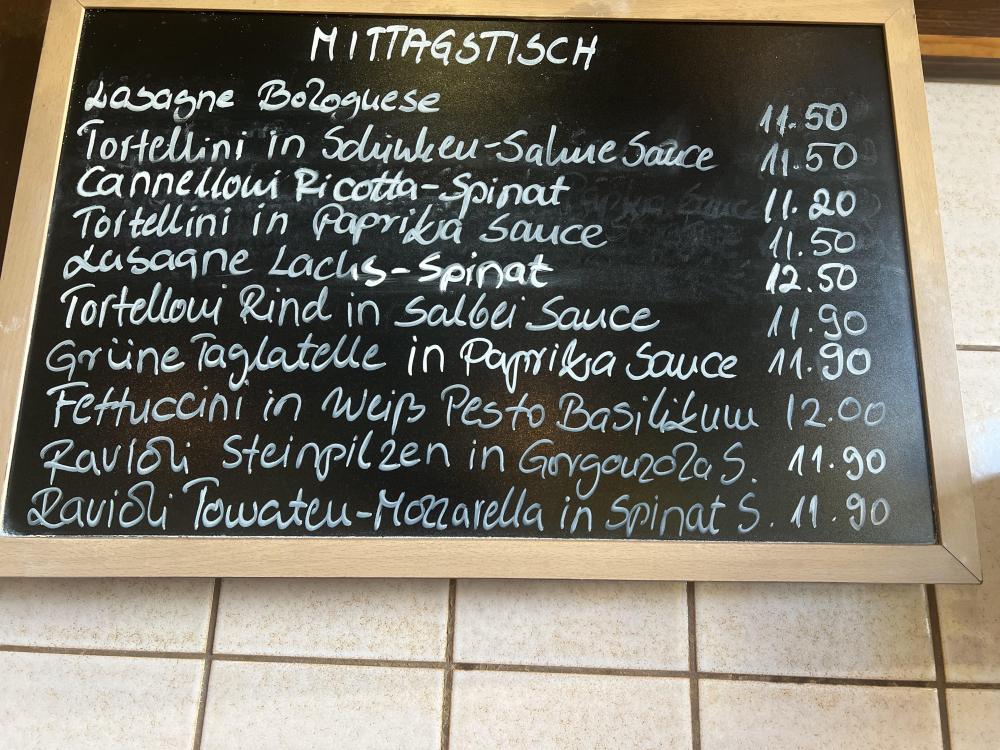 MITTAGSTISCH
Lasagne Bolognese 11.50
Tortellini in Schinken-Sahne Sauce 11.50
Cannelloni Ricotta-Spinat 11.20
Tortellini in Paprika Sauce 11.50
Lasagne Lachs-Spinat 12.50
Tortelloni Rind in Salbei Sauce 11.90
Grüne Taglatelle in Paprika Sauce 11.90
Fettuccini in Weiß Pesto Basilikum 12.00
Ravioli Steinpilzen in Gorgonzola S. 11.90
Ravioli Tomaten-Mozzarella in Spinat S. 11.90